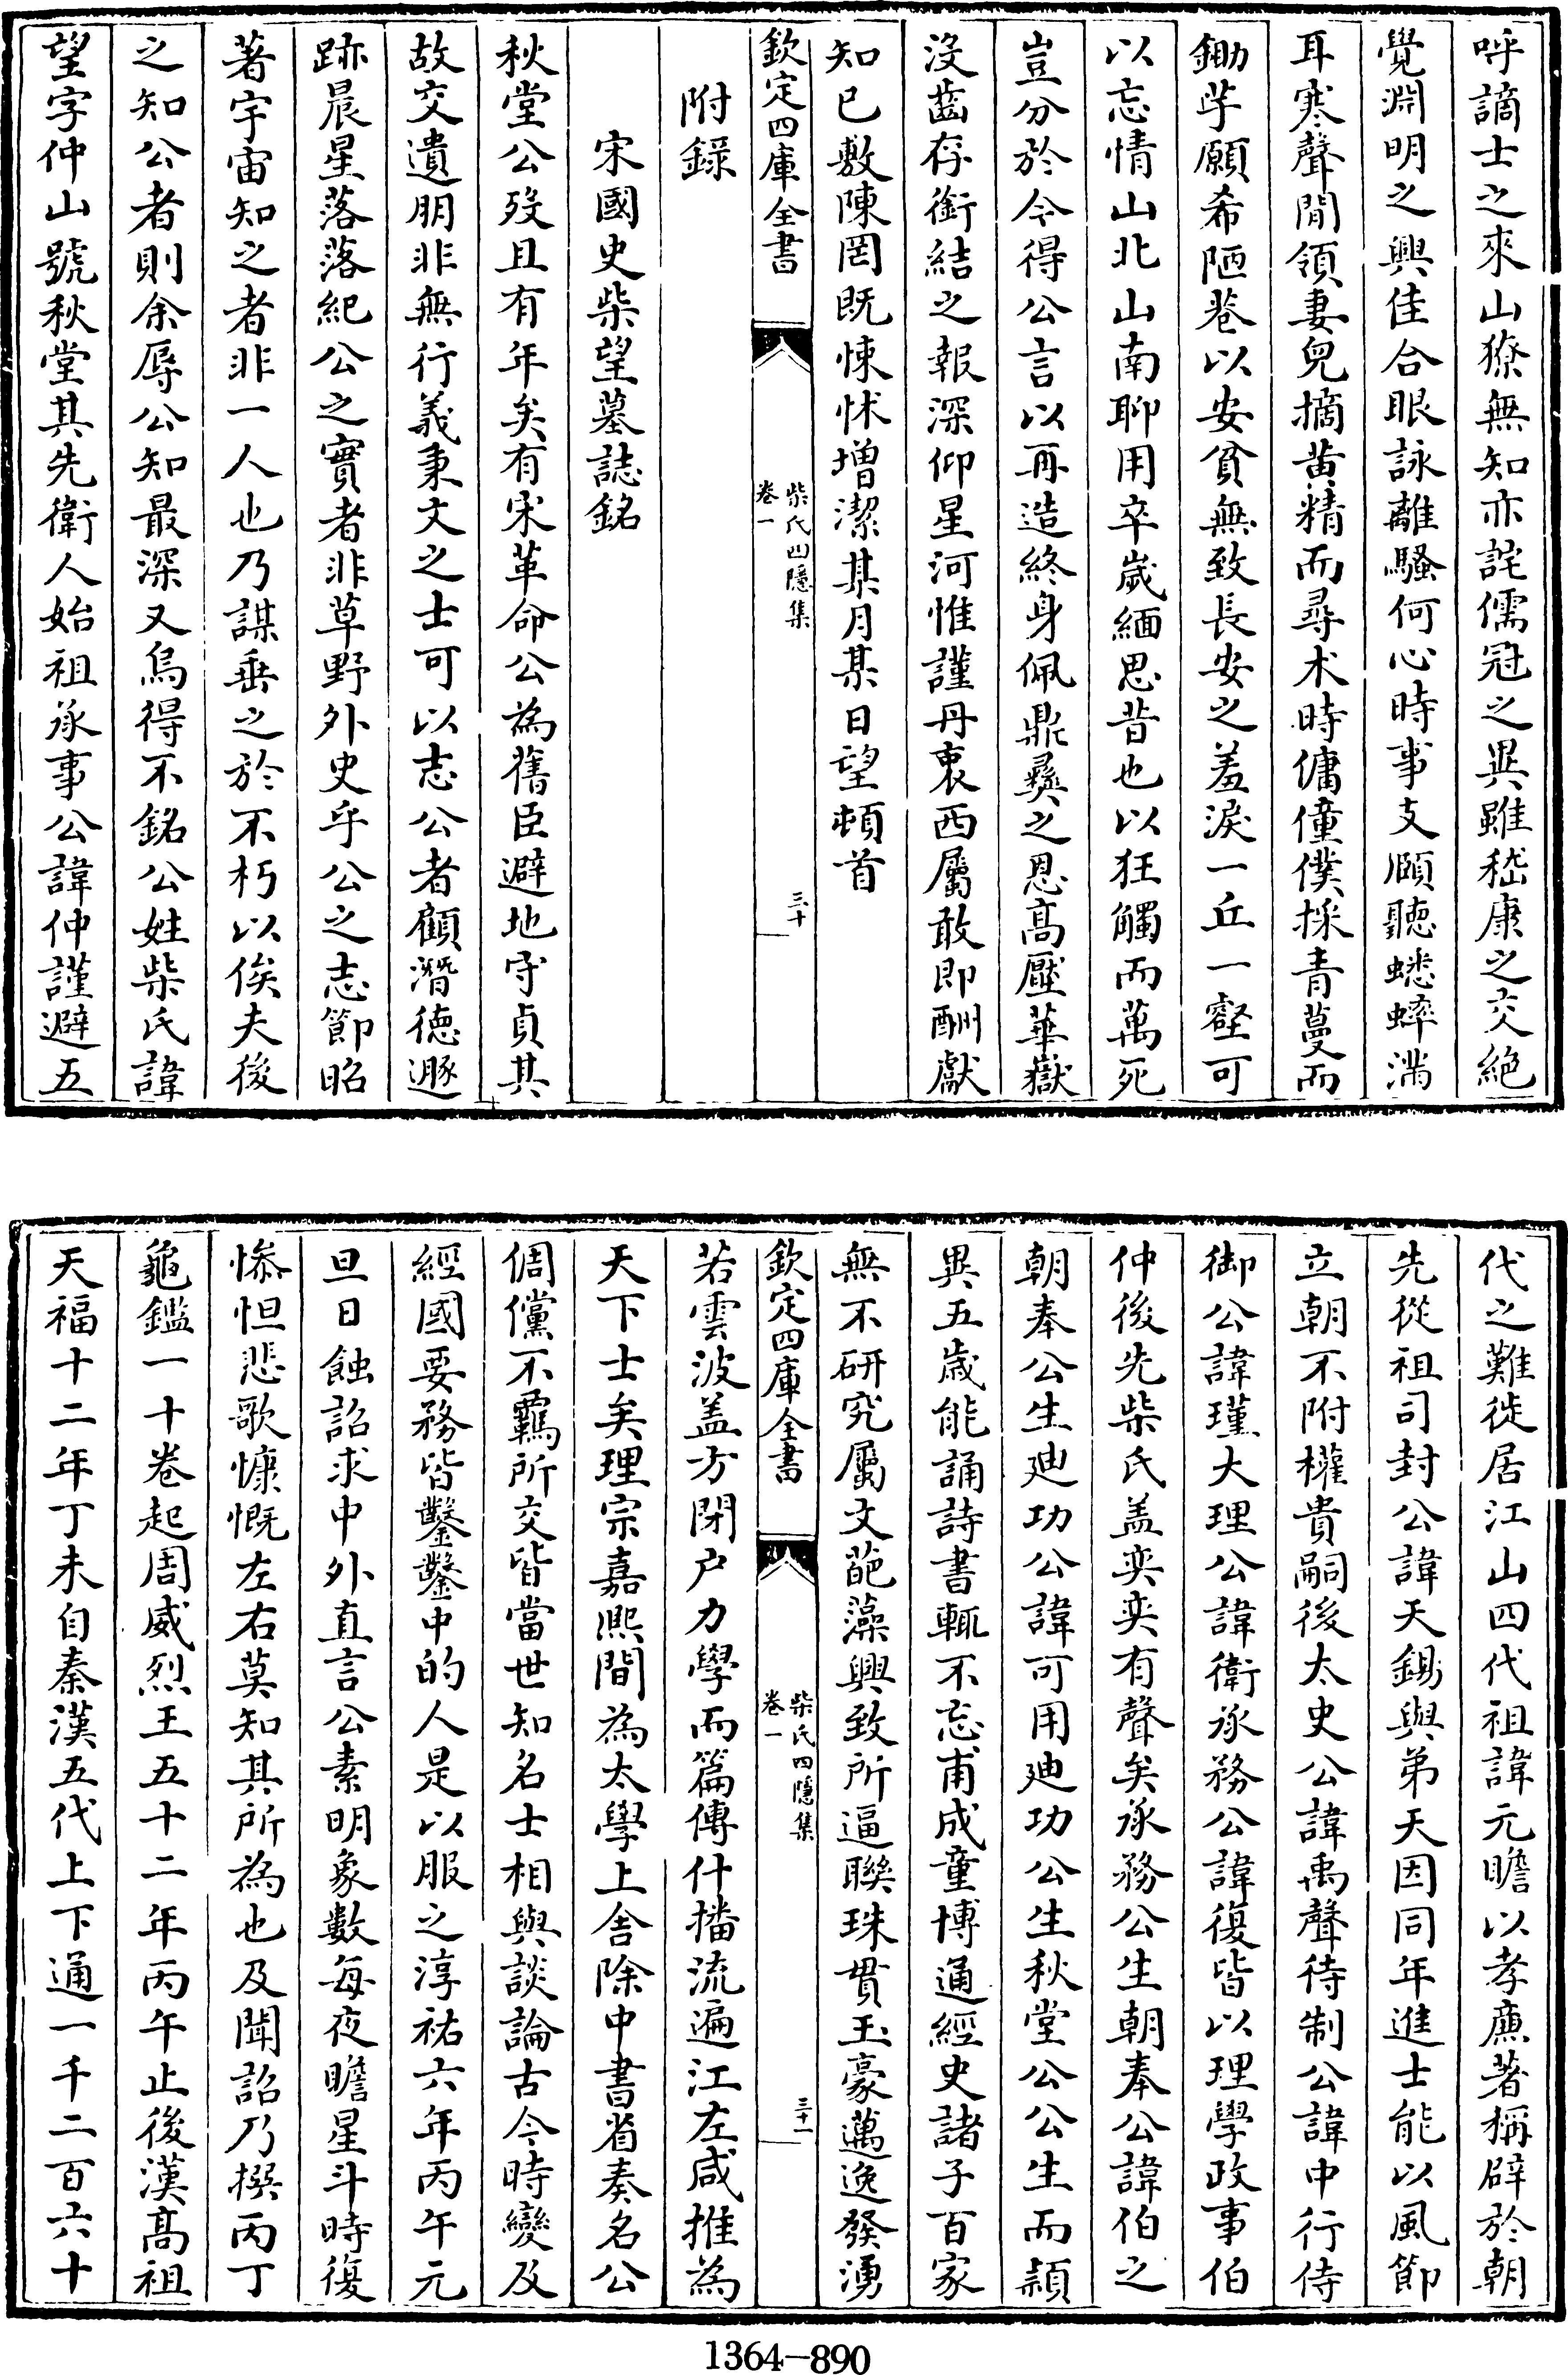 呼謫士之來山獠無知亦詫儒冠之異雖嵇康之交絶
覺淵明之興佳合眼詠離騷何心時事支頤聽蟋蟀滿
耳寒聲閒領妻兒摘黄精而尋朮時傭僮僕採青蔓而
鋤芋願希陋巷以安貧無致長安之羞淚一丘一壑可
以忘情山北山南聊用卒歲緬思昔也以狂觸而萬死
豈分於今得公言以再造終身佩鼎彞之恩高壓華嶽
沒齒存銜結之報深仰星河惟謹丹衷西屬敢即酬獻
知已敷陳罔既悚怵增潔某月某日望頓首
欽定四庫全書
柴氏四隱集
卷一
三十
附錄
宋國史柴望墓誌銘
秋堂公歿且有年矣有宋革命公為舊臣避地守貞其
故交遺朋非無行義秉文之士可以志公者顧潛德遯
跡晨星落落紀公之實者非草野外史乎公之志節昭
著宇宙知之者非一人也乃謀垂之於不朽以俟夫後
之知公者則余辱公知最深又烏得不銘公姓柴氏諱
望字仲山號秋堂其先衛人始祖承事公諱仲謹避五
代之難徙居江山四代祖諱元瞻以孝亷著稱辟於朝
先從祖司封公諱天錫與弟天因同年進士能以風節
立朝不附權貴嗣後太史公諱禹聲待制公諱中行侍
御公諱瑾大理公諱衛承務公諱復皆以理學政事伯
仲後先柴氏盖奕奕有聲矣承務公生朝奉公諱伯之
朝奉公生廸功公諱可用廸功公生秋堂公公生而頴
異五歲能誦詩書輒不忘甫成童博通經史諸子百家
無不研究屬文葩藻興致所逼聯珠貫玉豪邁逸發湧
欽定四庫全書
柴氏四隱集
卷一
三十一
若雲波盖方閉户力學而篇傳什播流遍江左咸推為
天下士矣理宗嘉熙間為太學上舍除中書省奏名公
倜儻不羈所交皆當世知名士相與談論古今時變及
經國要務皆鑿鑿中的人是以服之淳祐六年丙午元
旦日蝕詔求中外直言公素明象數每夜瞻星斗時復
慘怛悲歌慷慨左右莫知其所為也及聞詔乃撰丙丁
龜鑑一十卷起周威烈王五十二年丙午止後漢高祖
天福十二年丁未自秦漢五代上下通一千二百六十
1364-890